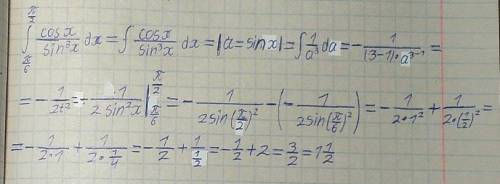 ∫_{π/6}^{π/2} cosx/sin³x dx = ∫ cosx/sin³x dx = |a = sinx| = ∫ 1/a³ da = - 1/((3-1)·a³⁻¹) =
= - 1/2a² = - 1/(2sin²x) |_{π/6}^{π/2} = - 1/(2sin(π/2)²) - (- 1/(2sin(π/6)²)) = - 1/(2·1²) + 1/(2·(1/2)²) =
= - 1/(2·1) + 1/(2·1/4) = - 1/2 + 1/(1/2) = - 1/2 + 2 = 3/2 = 1 1/2